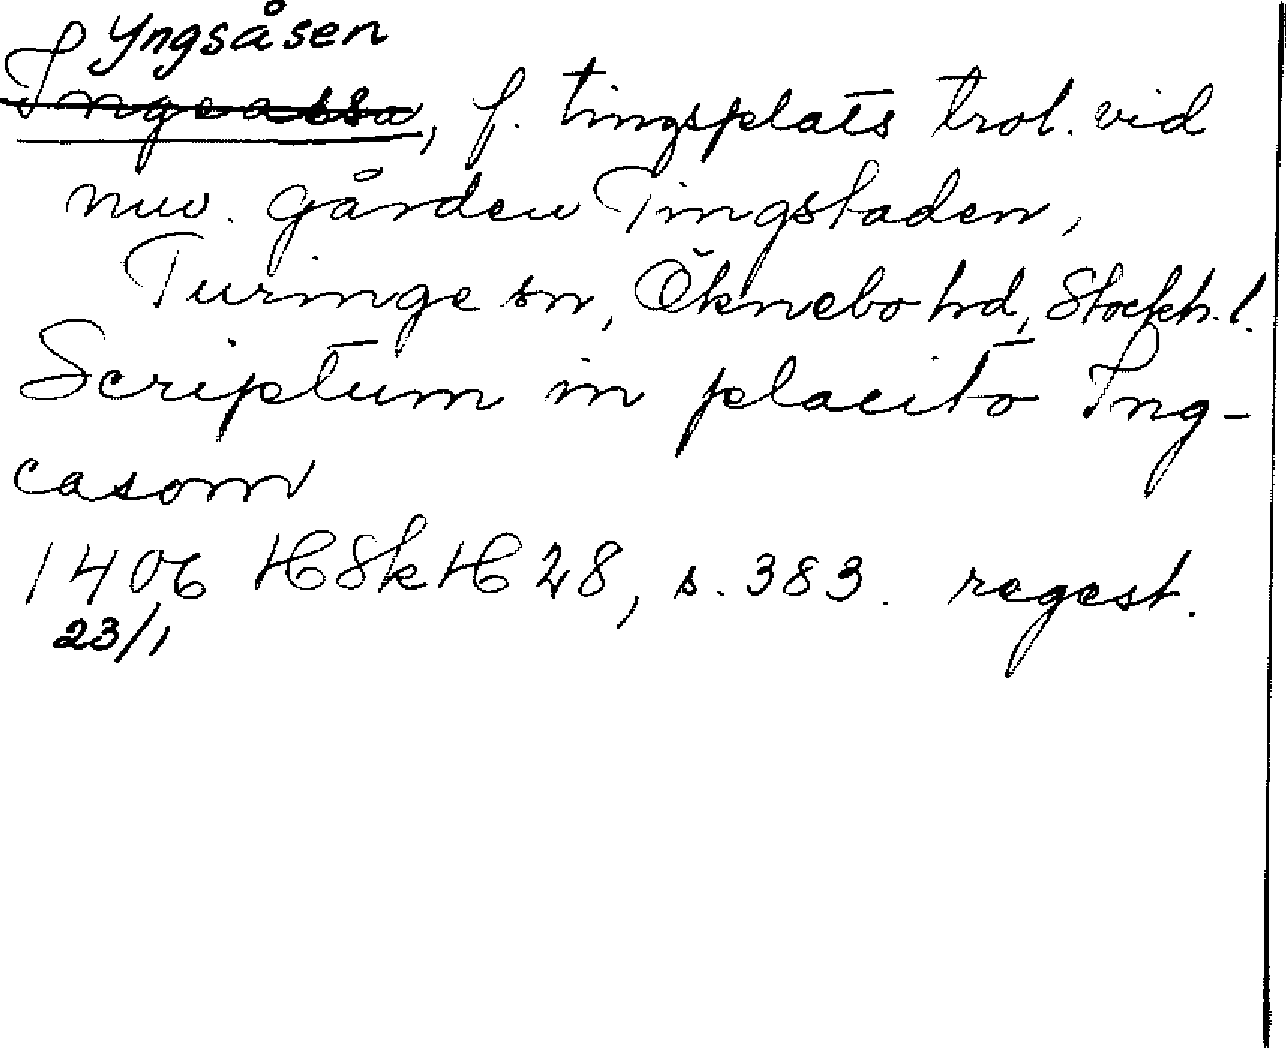 Yngsåsen
Ingeassa, f. tingsplats trol. vid
nuv. gården Tingstaden,
Turinge sn, Öknebo hd, Stockh. l.
Scriptum in placito Ing-
casom
1406 HSkH 28, s. 383. regest.
23/1